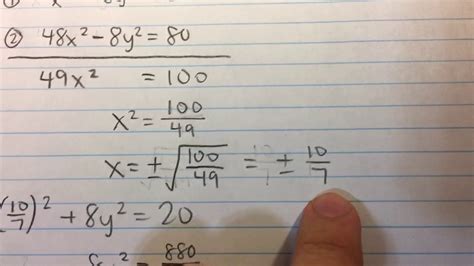 ② 48x² - 8y² = 80
49x² = 100
x² = 100/49
x = ±√(100/49) = ± 10/7
(10/7)² + 8y² = 20
8y² = 880